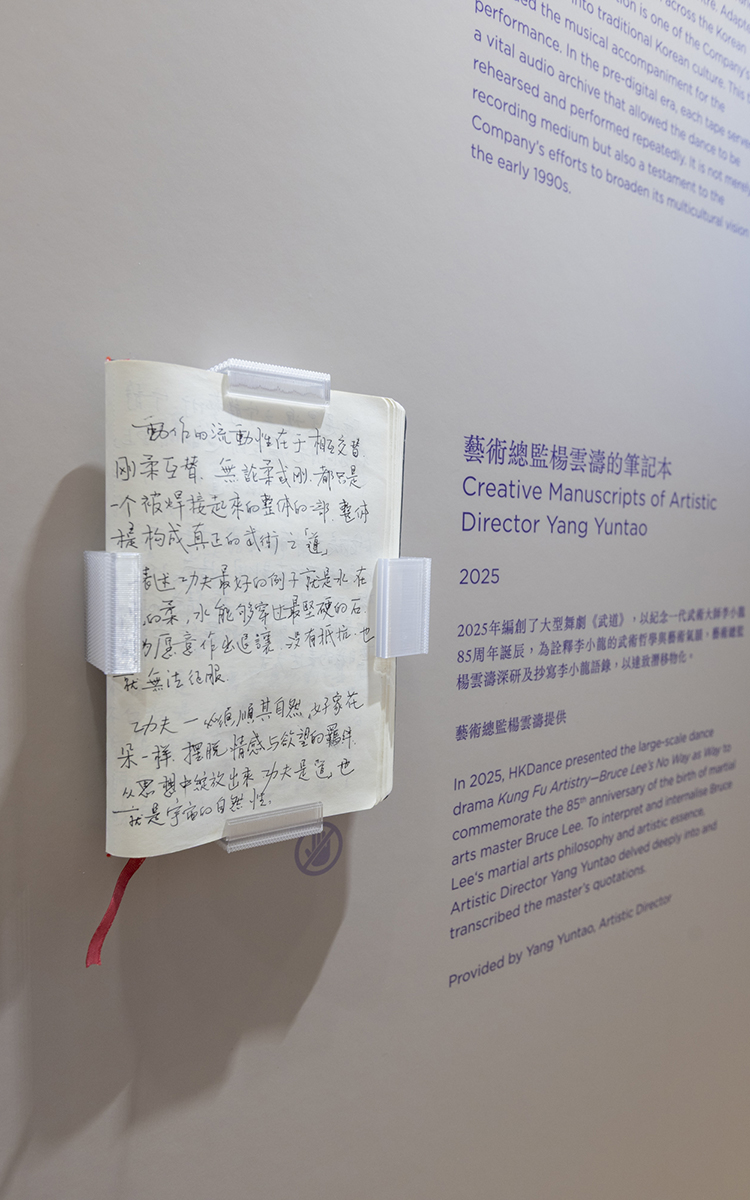 across the Korean
into traditional Korean culture. This
the musical accompaniment for the
performance. In the pre-digital era, each tape served
a vital audio archive that allowed the dance to be
rehearsed and performed repeatedly. It is not merely
recording medium but also a testament to the
Company's efforts to broaden its multicultural vision
the early 1990s.
動作的流動性在于相互交替
刚柔互替.無論柔或刚.都只是
一个被焊接起來的整体的一部.整体
構成真正的武術之道
功夫最好的例子就是水.在
的柔,水能够穿过最堅硬的石.
愿意作出退讓.没有抵抗.也
就無法征服.
功夫一必須順其自然,好家花
朵一样.擺脱情感与欲望的羈絆.
从思想中綻放出來.功夫是道也
就是宇宙的自然性.
藝術總監楊雲濤的筆記本
Creative Manuscripts of Artistic
Director Yang Yuntao
2025
2025年編創了大型舞劇《武道》,以紀念一代武術大師李小龍
85周年誕辰,為詮釋李小龍的武術哲學與藝術氣韻,藝術總監
楊雲濤深研及抄寫李小龍語錄,以達致潛移物化。
藝術總監楊雲濤提供
In 2025, HKDance presented the large-scale dance
drama Kung Fu Artistry—Bruce Lee's No Way as Way to
commemorate the 85th anniversary of the birth of martial
arts master Bruce Lee. To interpret and internalise Bruce
Lee's martial arts philosophy and artistic essence,
Artistic Director Yang Yuntao delved deeply into and
transcribed the master's quotations.
Provided by Yang Yuntao, Artistic Director